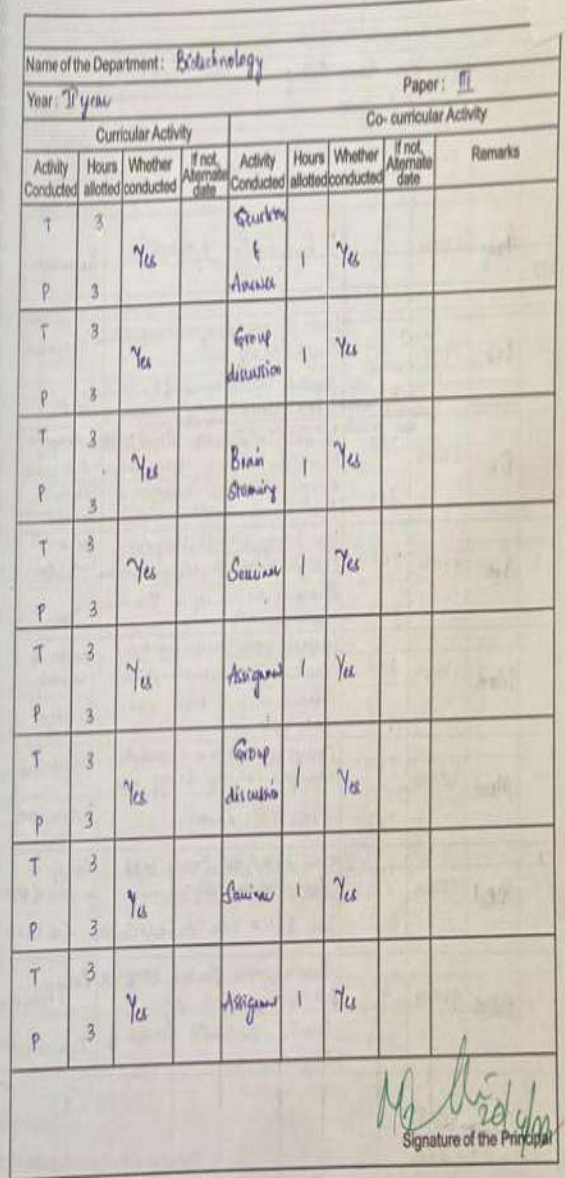 Name of the Department : Biotechnology
Year : II year Paper : III
Curricular Activity Co- curricular Activity
Activity Conducted Hours allotted Whether conducted If not, Alternate date Activity Conducted Hours allotted Whether conducted If not, Alternate date Remarks
T 3 Question
Yes & 1 Yes
P 3 Answer
T 3 Group
Yes discussion 1 Yes
P 3
T 3
Yes Brain 1 Yes
P 3 Storming
T 3
Yes Seminar 1 Yes
P 3
T 3
Yes Assignment 1 Yes
P 3
T 3 Group
Yes discussion 1 Yes
P 3
T 3
Yes Seminar 1 Yes
P 3
T 3
Yes Assignment 1 Yes
P 3
Signature of the Principal